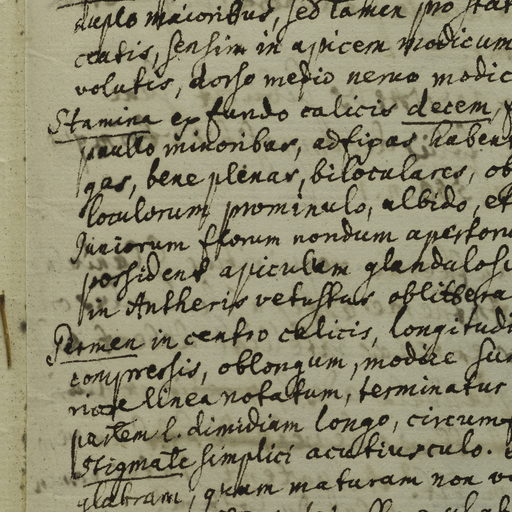 duplo maioribus, sed tamen pro stat
ceatis, sensim in apicem modicum
volutis, dorso medio nervo modic
Stamina ex fundo calicis decem,
paullo minoribus, adfixas habent
gas, bene plenas, biloculares, ob
loculorum prominulo, albido, et
Juniorum florum nondum apertoru
possident apiculam glandulosu
in Antheris vetustus oblittera
Germen in centro calicis, longitudi
compressis, oblongum, modice sur
linea notatum, terminatur
partem l. dimidiam longo, circum
Stigmate simplici acutiusculo.
glabram, quum maturam non v